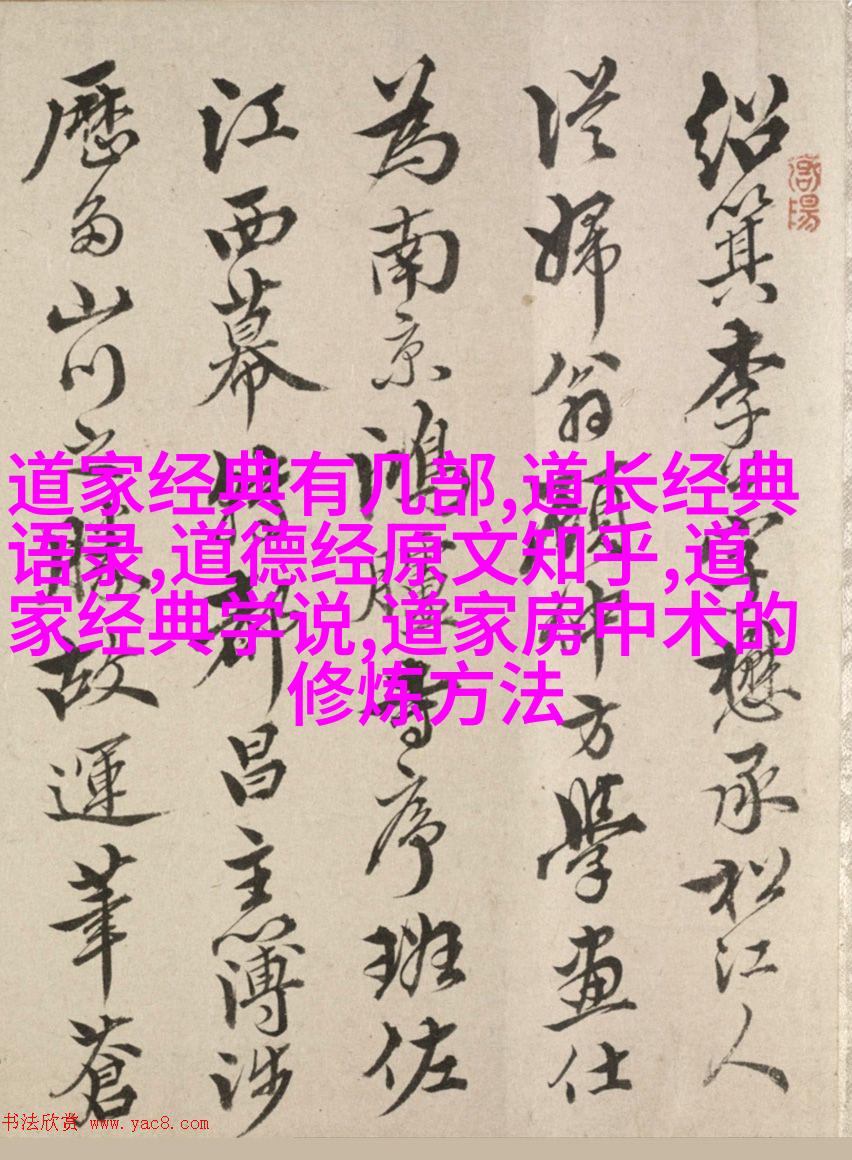 紹箕李字懋承松江人
從婦翁顧仲方學畫仕
為南京鴻臚寺序班佐
江西幕都昌主簿涉
歷多山川之勝故運筆蒼
道家经典有几部,道长经典
语录,道德经原文知乎,道
家经典学说,道家房中术的
修炼方法
书法欣赏 www.yac8.com